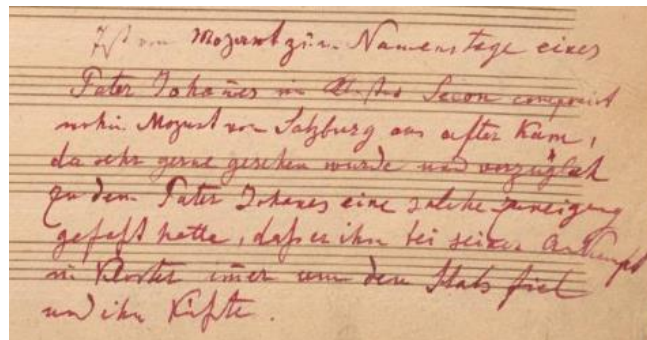 Ist von Mozart zum Namenstage eines
Pater Johañes im Kloster Seeon componirt
wohin Mozart von Salzburg aus öfter kam,
da sehr gerne gesehen wurde und vorzüglich
zu dem Pater Johanes eine solche Zuneigung
gefaßt hatte, daß er ihn bei seiner Ankunft
im Kloster im̃er um den Hals fiel
und ihn küßte.